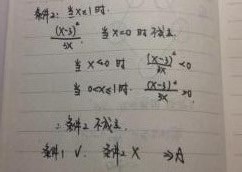 条件2: 当x≤1时.
(x-3)²/3x 当x=0时 不成立.
当x<0时 (x-3)²/3x <0
当0<x≤1时. (x-3)²/3x >0
∴条件2 不成立.
条件1 √. 条件2 X ⇒A